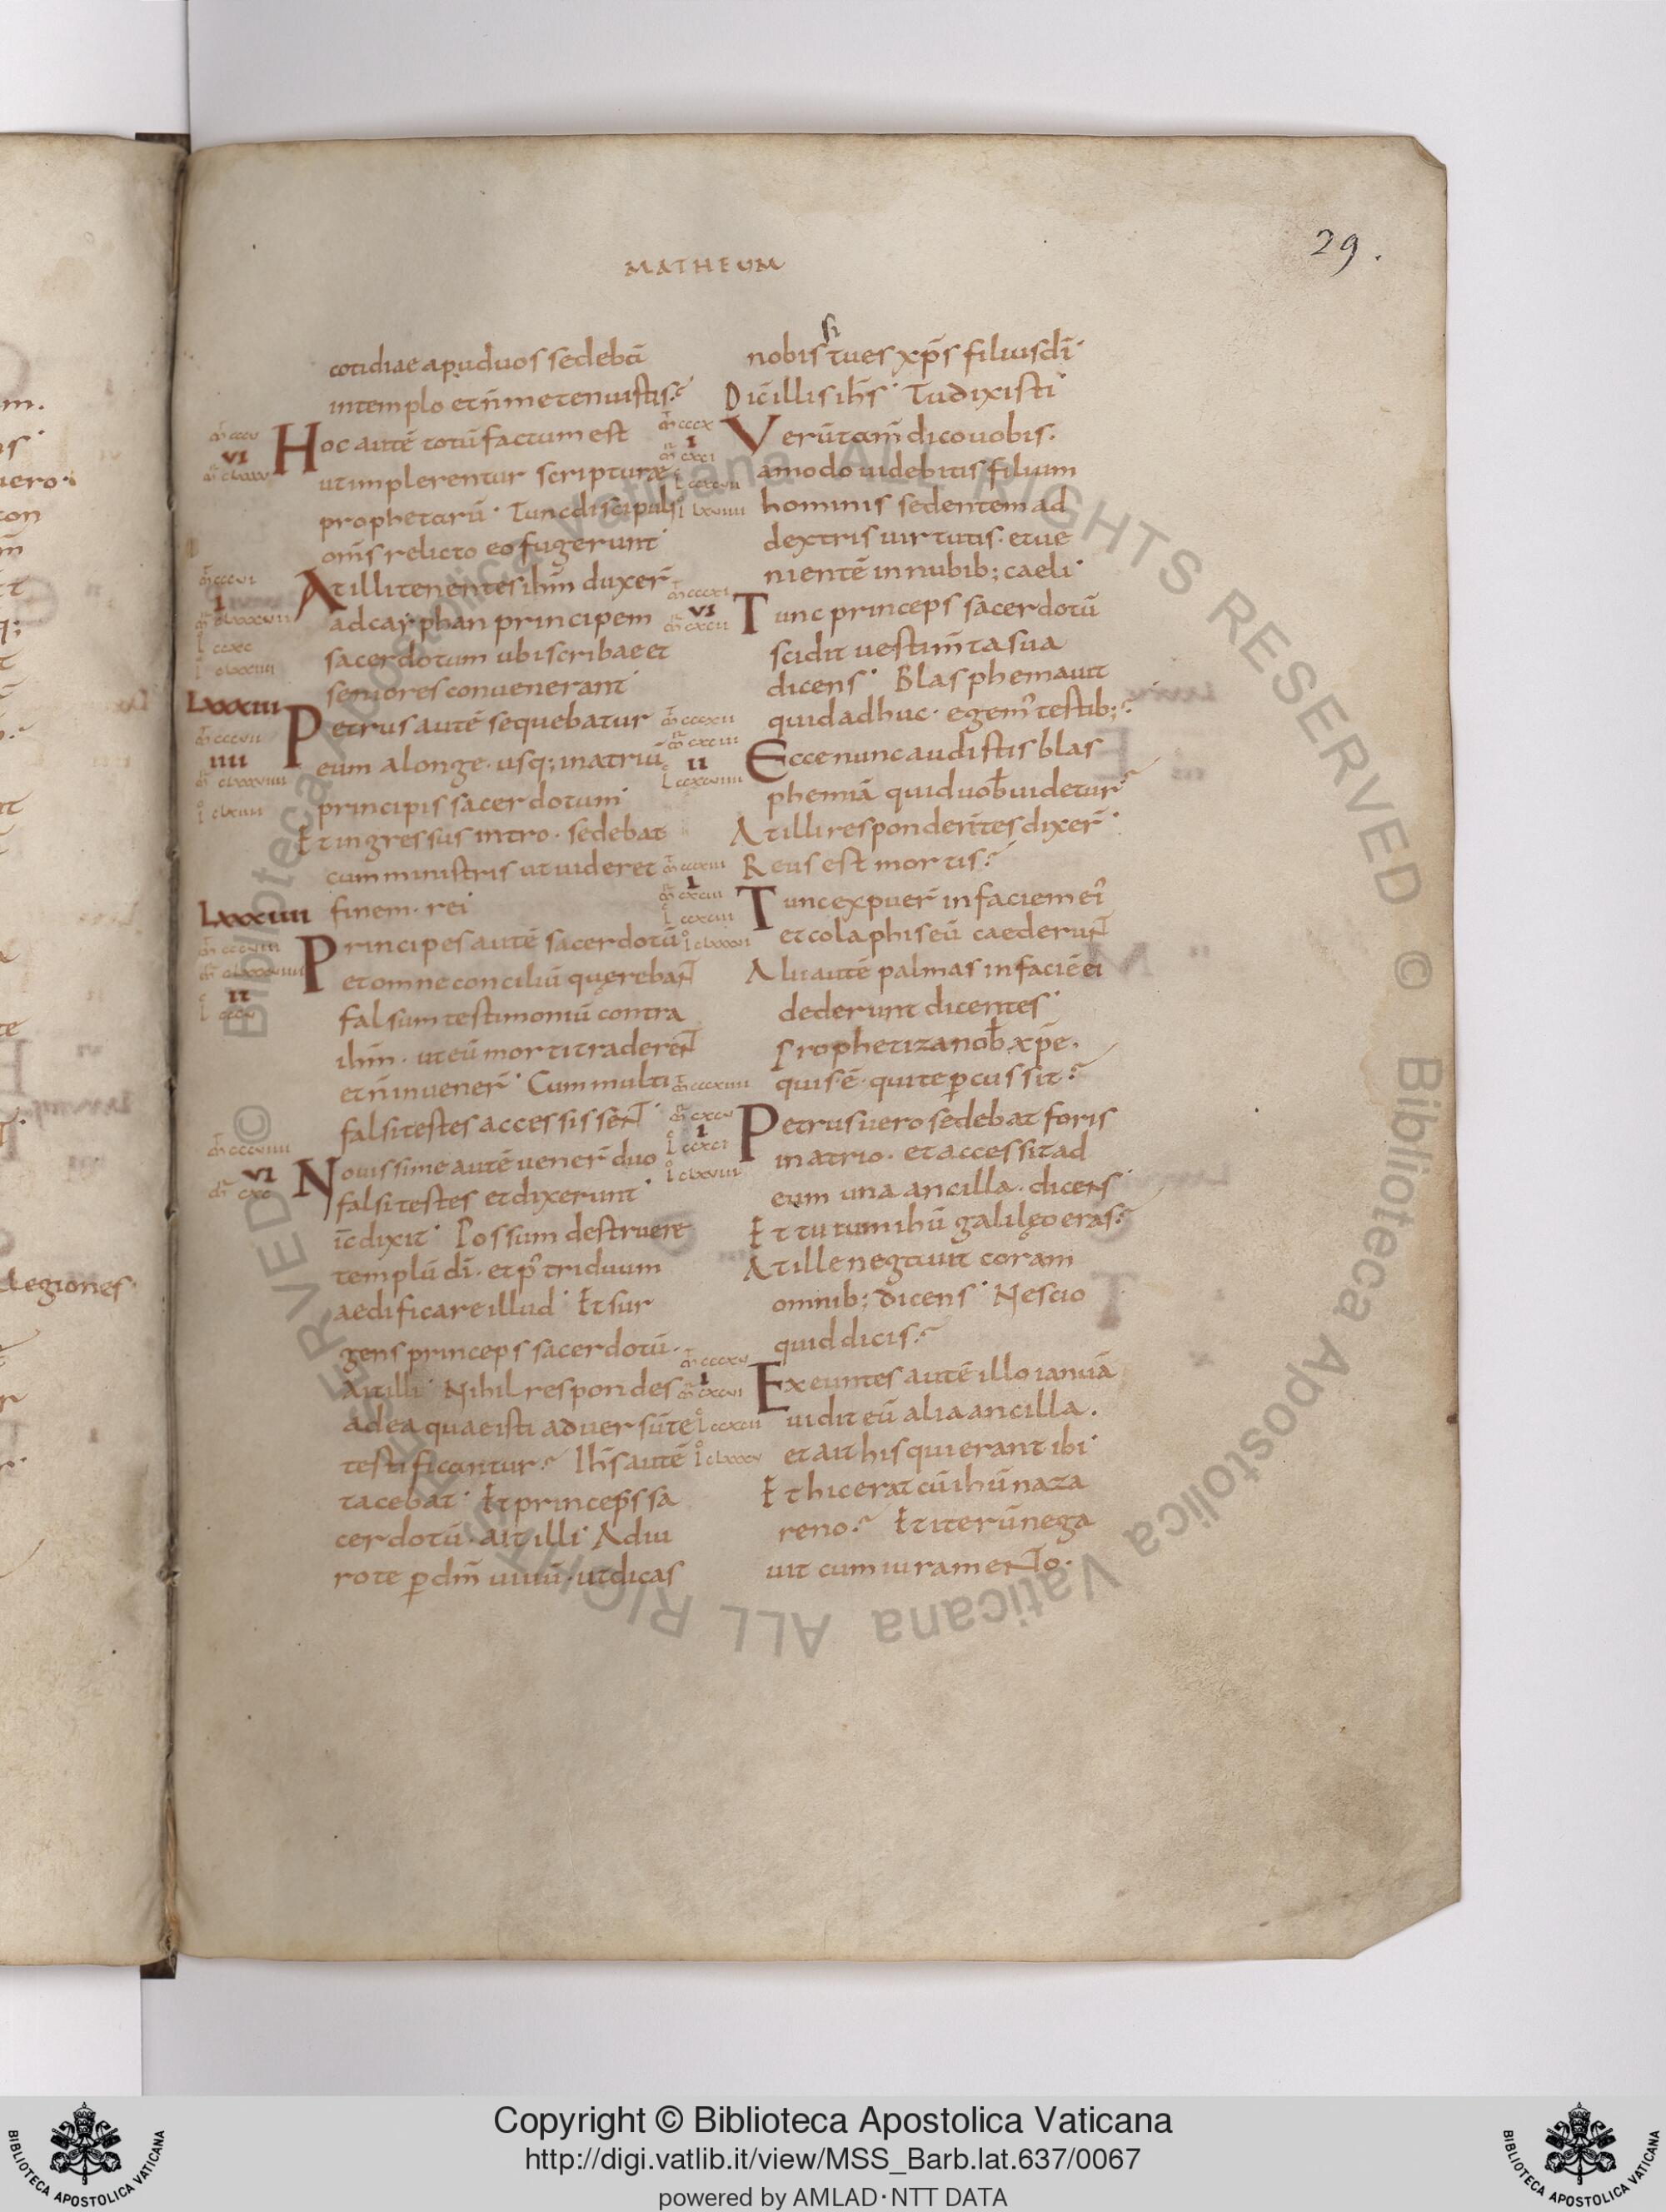 29.
MATHEUM
cotidiae apud uos sedebā
in templo et n̄ me tenuistis.
Hoc autē totū factum est
ut implerentur scripturae
prophetarū. Tunc discipuli
om̄s relicto eo fugerunt
At illi tenentes ihm̄ duxer̄
ad cayphan principem
sacerdotum ubi scribae et
seniores conuenerant
LXXXIII
Petrus autē sequebatur
eum a longe. usq; in atriū
principis sacerdotum
Et ingressus intro. sedebat
cum ministris ut uideret
LXXXIIII
finem. rei
Principes autē sacerdotū
et omne conciliū quęrebaNT
falsum testimoniū contra
ihm̄. ut eū morti tradereNT
et n̄ inuener̄. Cum multi
falsi testes accessisseNT.
Nouissime autē uener̄ duo
falsi testes et dixerunt.
ic̄ dixit. Possum destruere
templū dī. et p̄ triduum
aedificare illud. Et sur
gens princeps sacerdotū.
Ait illi. Nihil respondes
ad ea quae isti aduersū te
testificantur. Ihs̄ autē
tacebat. Et princeps sa
cerdotū. ait illi. Adiu
ro te p̄ dm̄ uiuū. ut dicas
nobis si tu es xp̄s filius dī.
Dic̄ illis ihs̄. Tu dixisti.
Verūtam̄ dico uobis.
amodo uidebitis filium
hominis sedentem ad
dextris uirtutis. et ue
nientē in nubib; caeli.
Tunc princeps sacerdotū
scidit uestim̄ta sua
dicens. Blasphemauit
quid adhuc. egem' testib;
Ecce nunc audistis blas
phemiā quid uob̄ uidetur
At illi respondentes dixer̄.
Reus est mortis.
Tunc expuer̄ in faciem ei'
et colaphis eū caederuNT
Alii autē palmas in faciē ei
dederunt dicentes.
Prophetiza nob̄ xp̄e.
quis ē. qui te p̄cussit.
Petrus uero sedebat foris
in atrio. et accessit ad
eum una ancilla. dicens
Et tu cum ihū galilęo eras.
At ille negauit coram
omnib; dicens. Nescio
quid dicis.
Exeuntes autē illo ianuā
uidit eū alia ancilla.
et ait his qui erant ibi.
Et hic erat cū ihū naza
reno. Et iterū nega
uit cum iurameNTo.
Copyright © Biblioteca Apostolica Vaticana
http://digi.vatlib.it/view/MSS_Barb.lat.637/0067
powered by AMLAD·NTT DATA
BIBLIOTECA APOSTOLICA VATICANA
BIBLIOTECA APOSTOLICA VATICANA